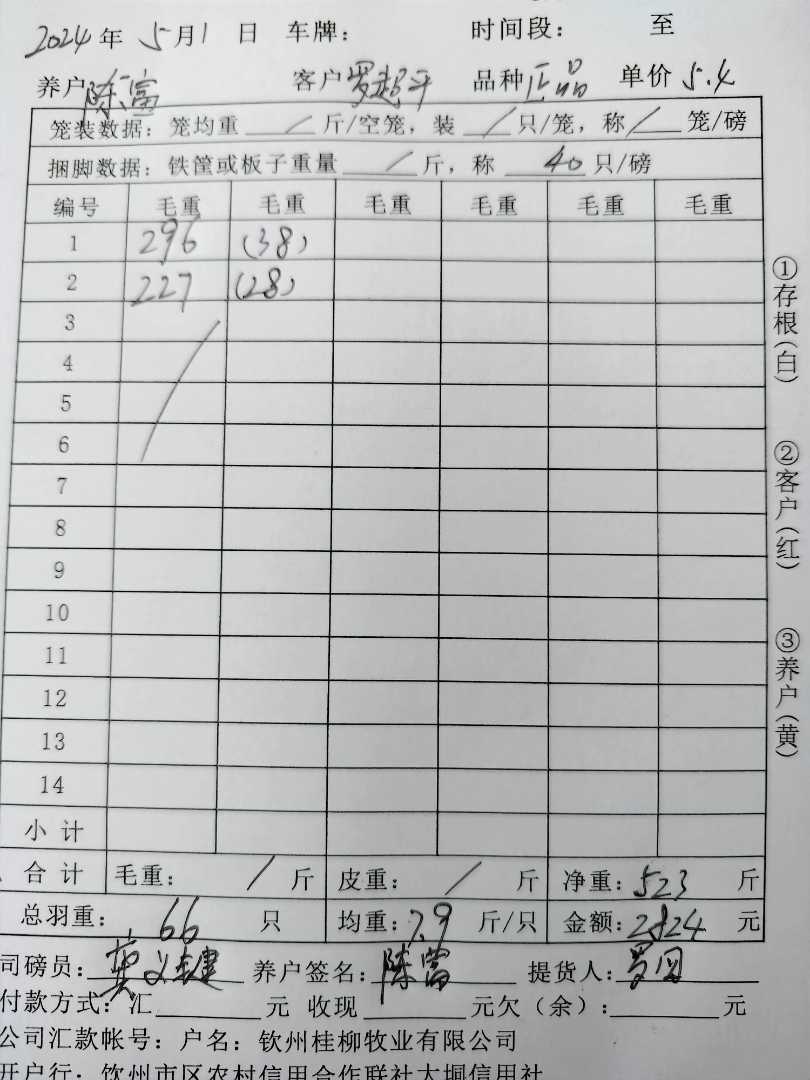 2024 年 5 月 1 日 车牌： 时间段： 至
养户 陈富 客户 罗超平 品种 正品 单价 5.4
笼装数据：笼均重 / 斤/空笼，装 / 只/笼，称 / 笼/磅
捆脚数据：铁筐或板子重量 / 斤，称 40 只/磅
编号 毛重 毛重 毛重 毛重 毛重 毛重
1 296 (38)
2 227 (28)
3
4
5
6
7
8
9
10
11
12
13
14
小计
合计 毛重： / 斤 皮重： / 斤 净重：523 斤
总羽重： 66 只 均重：7.9 斤/只 金额：2824 元
司磅员： 养户签名：陈富 提货人：
付款方式：汇 元 收现 元欠（余）： 元
公司汇款帐号：户名：钦州桂柳牧业有限公司
开户行：钦州市区农村信用合作联社大垌信用社
①存根(白)
②客户(红)
③养户(黄)